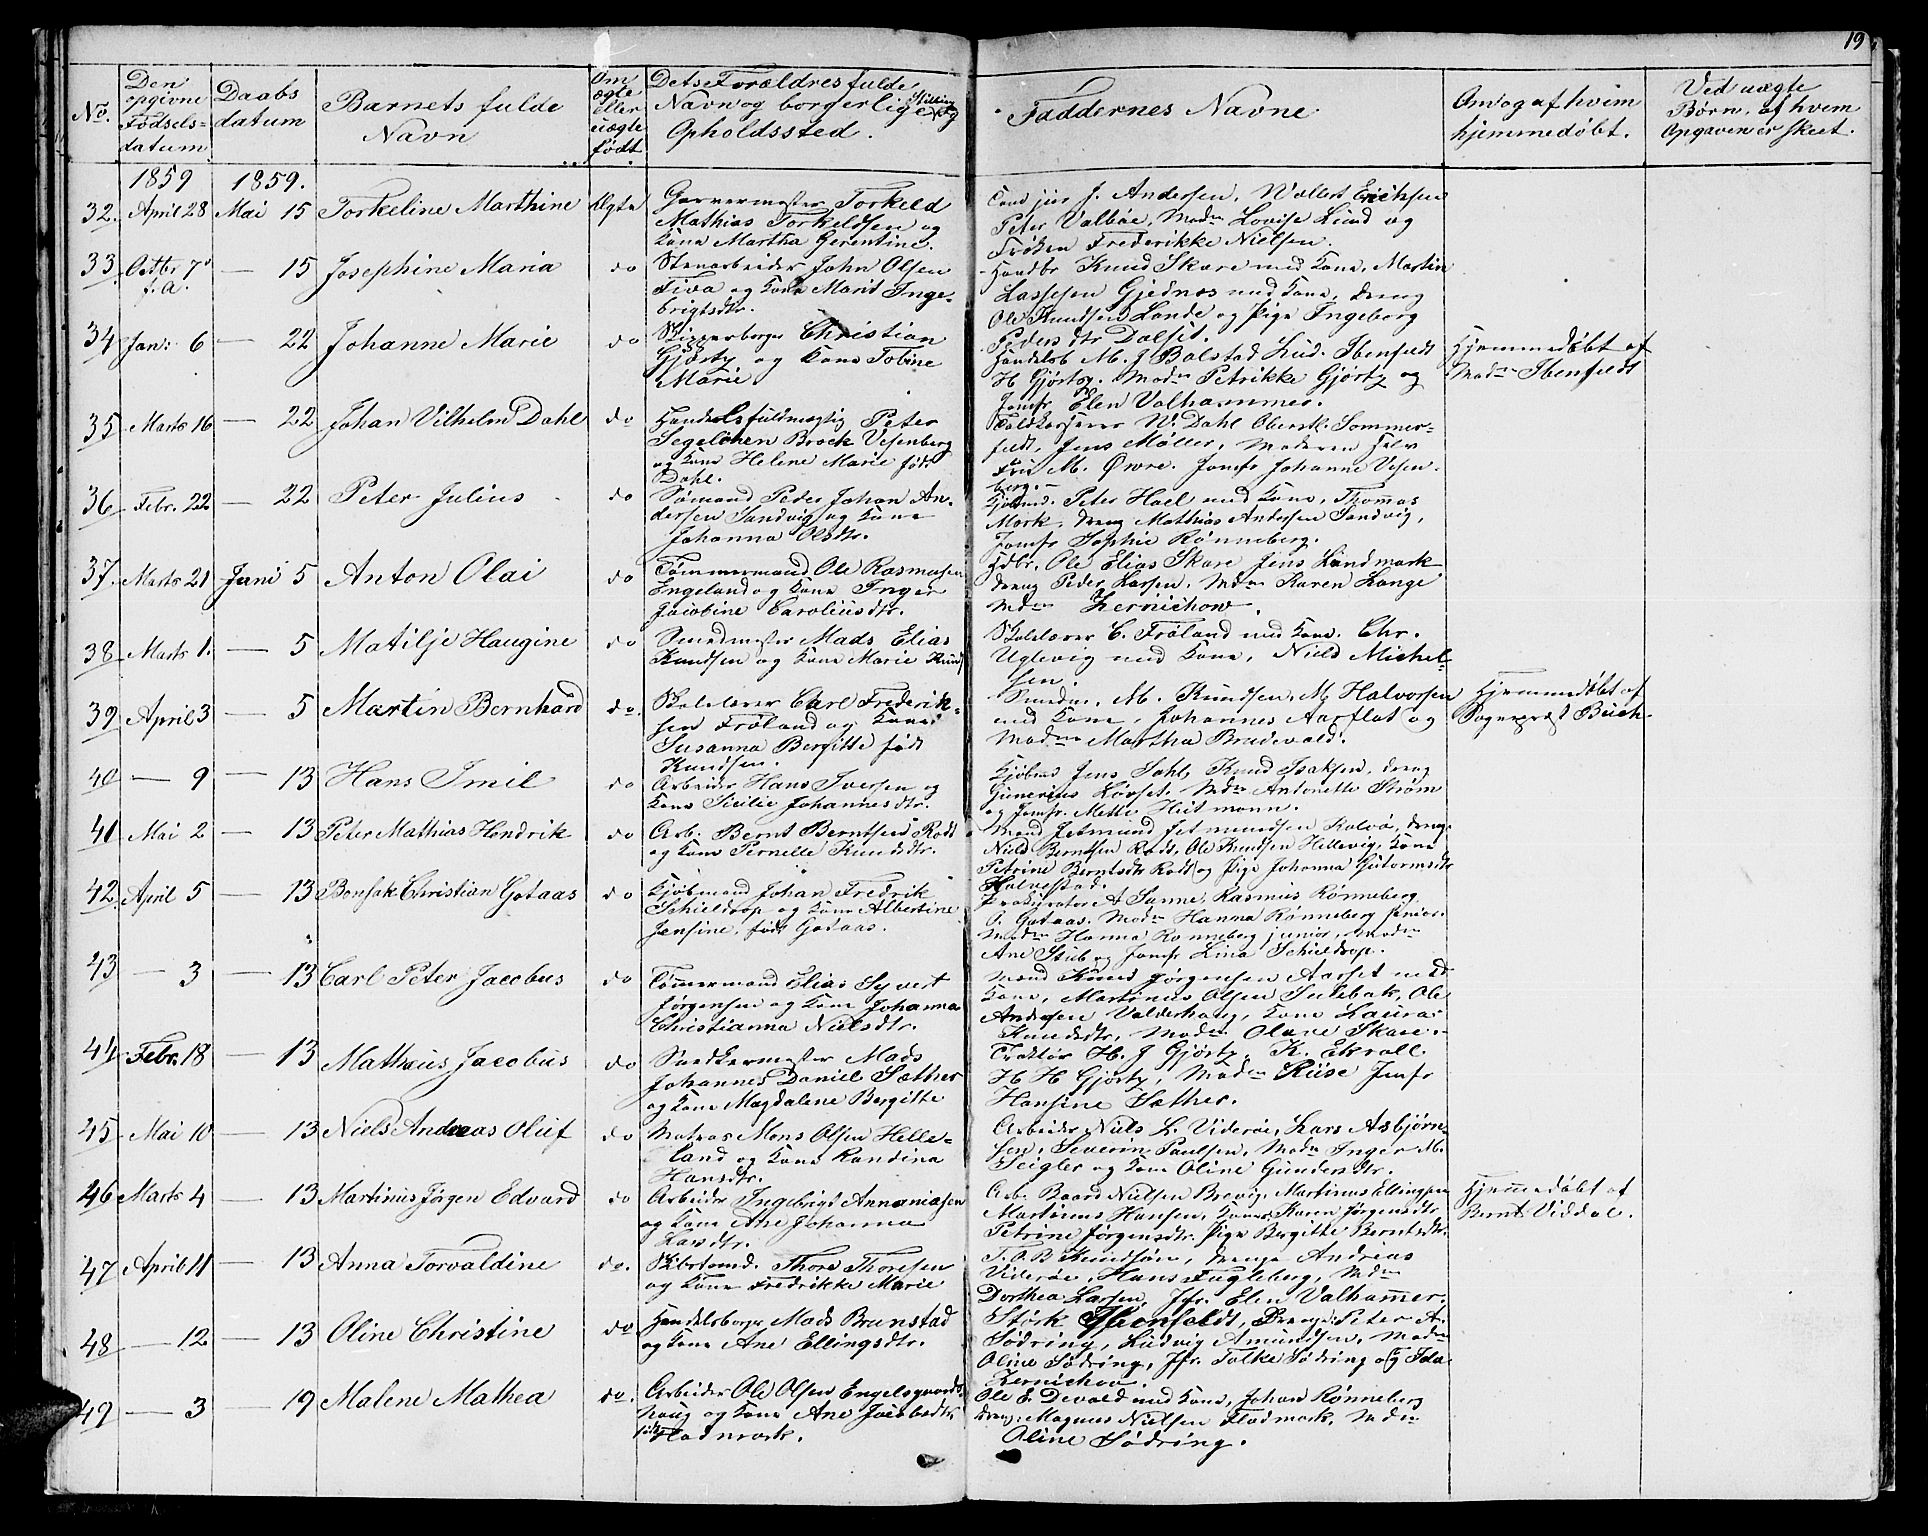 19
No. Den opgivne Fødselsdatum Daabsdatum Barnets fulde Navn Om ægte eller uægte født Dets Forældres fulde Navn og borgerlige Stilling og Opholdssted. Faddernes Navne Om og af hvem hjemmedøbt. Ved uægte Børn, af hvem Opgaven er skeet.
1859 1859.
32. April 28 Mai 15 Torkeline Marthine Ægte Garvermester Torkeld
Mathias Torkeldsen og
Kone Martha Gerentine.
Cand jur J. Andersen, Wollert Erichsen
Peter Valbøe, Madm Lovise Lund og
Frøken Frederikke Nielsen.
33. Octbr 7de f.a. — 15 Josephine Maria do Stenarbeider John Olsen
Fiva og Kone Marit Inge-
brigtsdtr.
Handbr Knud Skare med Kone, Martin
Lassesen Gjednes med Kone, dreng
Ole Knudsen Lande og Pige Ingeborg
Pedersdtr Dalset.
34 Jan: 6 — 22 Johanne Marie do Skipperborger Christian
Gjørtz og Kone Tobine
Marie
Handelsb M. J. Bolstad Lud. Ibenfeldt
H Gjørtz. Madm Petrikke Gjørtz og
Jomfr Elen Valhammer.
Hjemmedøbt af
Madm Ibenfeldt
35 Marts 16 — 22 Johan Vilhelm Dahl do Handelsfuldmægtig Peter
Segelcken Brock Vesenberg
og Kone Helene Marie født
Dahl.
W. Dahl Oberstl. Sommer-
feldt, Jens Møller, Moderen selv
Frue M. Øwre. Jomfr Johanne Vesen-
berg.
36 Febr. 22 — 22 Peter Julius do Sømand Peder Johan An-
dersen Sandvig og Kone
Johanna Olsdtr.
Kjøbmd. Peter Hoel med Kone, Thommas
Mork, dreng Mathias Andersen Sandvig,
Jomfr Sophie Rønneberg.
37. Marts 21 Juni 5 Anton Olai do Tømmermand Ole Rasmusen
Engeland og Kone Inger
Jacobine Caroliusdtr.
Hdbr. Ole Elias Skare Jens Landmark
dreng Peder Larsen, Mdm Karen Lange
Mdm Zernichow.
38 Marts 1. — 5 Matilje Haugine do Smedmester Mads Elias
Knudsen og Kone Marie Knud
Skolelærer C. Frøland med Kone. Chr.
Uglevig med Kone, Niels Michel-
sen.
39 April 3 — 5 Martin Bernhard do. Skolelærer Carl Fredrik-
sen Frøland og Kone
Susanna Bergitte født
Knudsen.
Smedm. M. Knudsen, M Halvorsen
med Kone, Johannes Aarflot og
Madm Martha Brudevald.
Hjemmedøbt af
Sognepræst Buch.
40 — 9 — 13 Hans Imil do Arbeider Hans Iversen og
Kone Sicilie Johannesdtr.
Kjøbmd Jens Dahl, Knud Isaksen, dreng
Gunerius Løvset. Mdm Antonette Strøm
og Jomfr. Mette Heitmann.
41 Mai 2 — 13 Peter Mathias Hendrik do Arb. Bernt Berntsen Rodt
og Kone Pernelle Knudsdtr.
Mand Jetmund Jetmundsen Kalvø, dreng
Niels Berntsen Rodt, Ole Knudsen Hellevig, Kone
Petrine Berntsdtr Rodt og Pige Johanna Gutormsdtr
42. April 5 — 13 Bonsak Christian Gotaas do Kjøbmand Johan Fredrik
Schieldrop og Kone Albertine
Jensine, født Gotaas.
Prokurator A Sanne, Rasmus Rønneberg
O. Gotaas. Madm Hanna Rønneberg senior.
Madm Hanna Rønneberg junior, Madm
Ane Stub og Jomfr Lina Schieldrop.
43 — 3 — 13 Carl Peter Jacobus do Tømmermand Elias Syvert
Jørgensen og Kone Johanna
Christianna Nielsdtr.
Mand Knud Jørgensen Aarset med
Kone, Martinus Olsen Sulebak, Ole
Andersen Valderhaug, Kone Laura
Knudsdtr, Madm Olave Skare.
44 Febr. 18 — 13 Mathæus Jacobus do Snedkermester Mads
Johannes Daniel Sæther
og Kone Magdalene Bergitte
Traktør H. J Gjørtz, K. Ekroll
H H Gjørtz, Madm Riise Jomfr
Hansine Sæther.
45 Mai 10 — 13 Niels Andreas Oluf do Matros Mons Olsen Helle-
land og Kone Randina
Hansdtr.
Arbeider Niels L. Viderøe, Lars Asbjørn-
sen, Severin Paulsen, Madm Inger M.
Seigler og Kone Oline Gundersdtr.
46 Marts 4 — 13 Martinus Jøgen Edvard do Arbeider Ingebrigt Annaniasen
og Kone Ane Johanna
Larsdtr.
Arb. Baard Nielsen Brevig, Martinus Ellingsen
Martinus Hansen, Kone Karen Jørgensdtr
Petrine Jørgensdtr. Pige Bergitte Berntsdtr.
Hjemmedøbt af
Bernt Viddal.
47 April 11 — 13 Anna Torvaldine do. Skibstømd. Thore Thoresen
og Kone Fredrikke Marie
T. O. B Knudsøn, drenge Andreas
Viderøe, Hans Fugleberg, Mdm
Dorthea Larsen, Jfr. Elen Valhammer.
48 — 12 — 13 Oline Christine do Handelsborger Mads Brunstad
og Kone Ane Ellingsdtr.
Størk Ibenfeldt, Dreng: Peter A.
Sødring, Ludvig Amundsen, Madm
Oline Sødring, Jfr. Tolke Sødring og Ida
Zernichow.
49 — 3 — 19 Malene Mathea do. Arbeider Ole Olsen Engelsgaards
haug og Kone Ane Jacobsdtr
født Flodmark.
Ole E. Devold med Kone, Johan Rønneberg
dreng Magnus Nielsen Flodmark, Mdm
Oline Sødring.